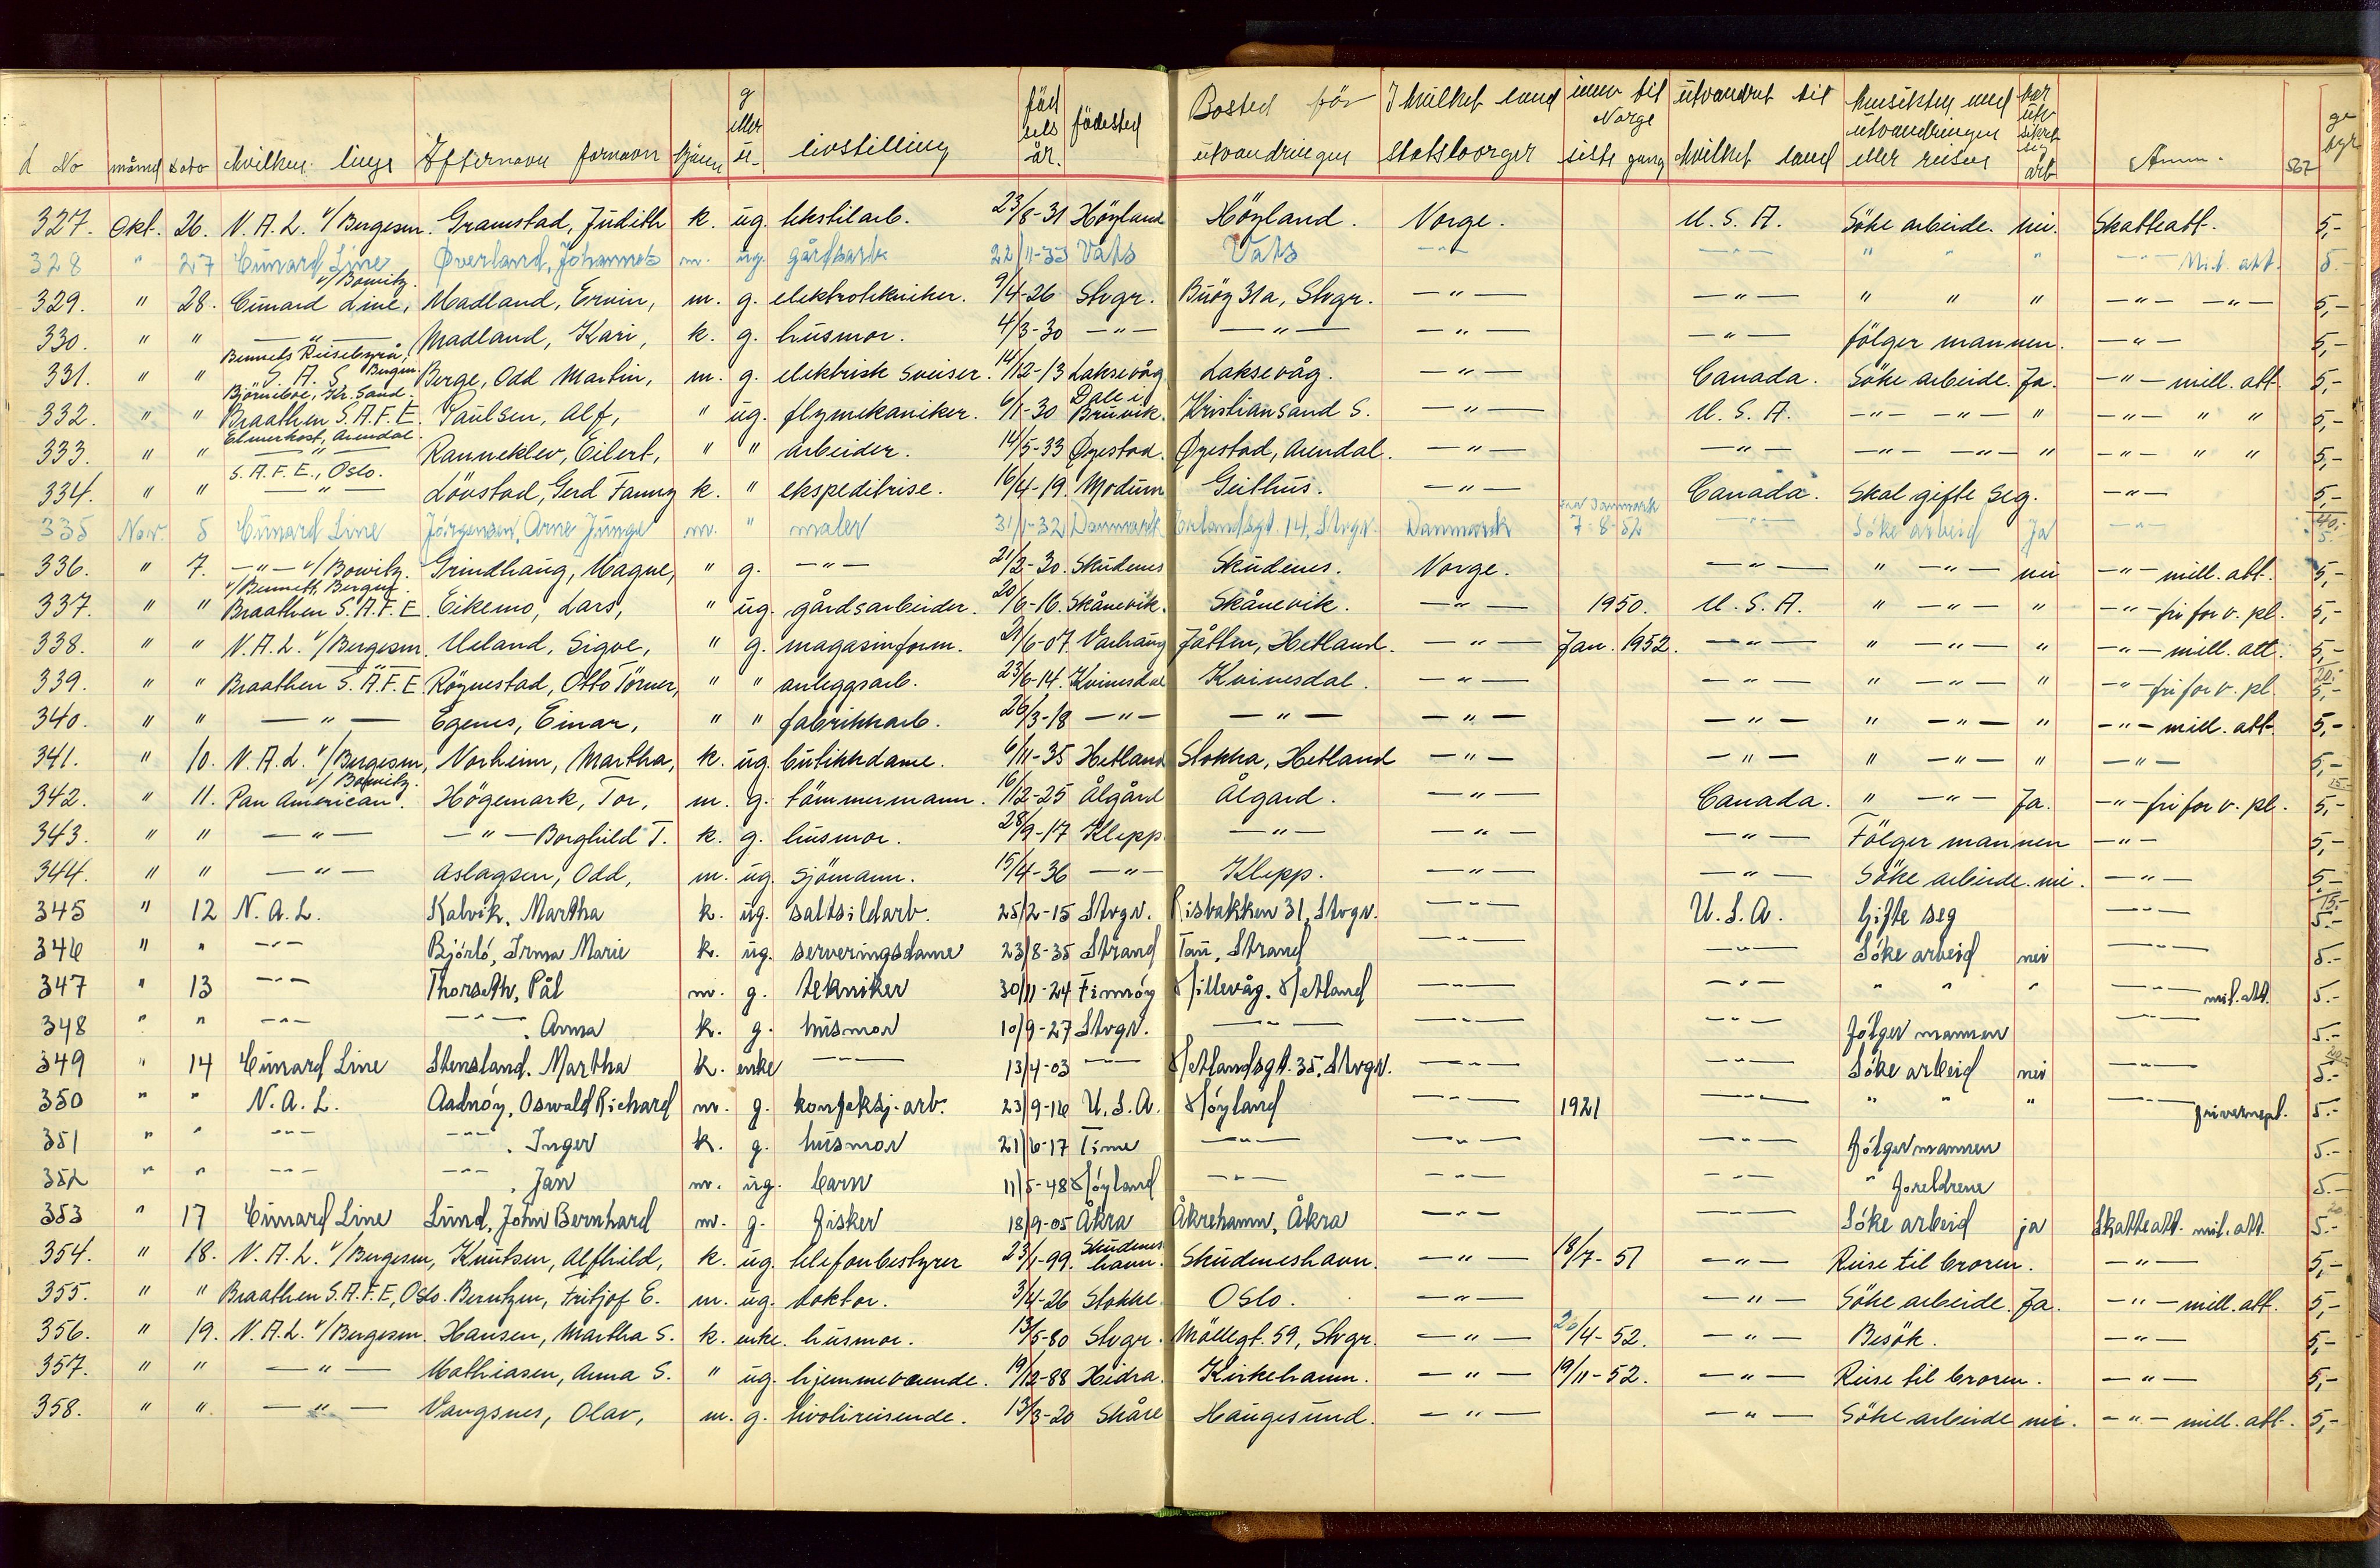 No måned dato hvilken linje Efternavn fornavn kjønn g eller u- livstilling fødselsår. fødested Bosted før utvandringen I hvilket land statsborger inn til Norge siste gang utvandret til hvilket land hensikten med utvandringen eller reisen har utv sikret seg arb Anm. 567 gebyr
327. Okt. 26. N.A.L. v/Bergesen. Gramstad, Judith k. ug. tekstilarb. 23/8-31 Höyland Höyland. Norge. U.S.A. Söke arbeide. nei. Skatteatt. 5,-
328 " 27 Cunard Line Øverland, Johannes m. ug. gårdsarb. 22/11-33 Vats Vats —"— —"— " " " —"— Mil. att. 5.-
329. " 28. Cunard Line, v/Bowitz. Madland, Ervin, m. g. elektrotekniker. 9/4-26 Stvgr. Buöy 31a, Stvgr. —"— —"— " " " —"— —"— 5,-
330. " " —"— Madland, Kari, k. g. husmor. 4/3-30 —"— —"— —"— —"— fölger mannen. —"— 5,-
331. " " Bennets Reisebyrå, Bergen S.A.S. Berge, Odd Martin, m. g. elektrisk sveiser. 14/12-13 Laksevåg Laksevåg. —"— Canada. Söke arbeide. Ja. —"— mill. att. 5,-
332. " " Björneboe, Kr. Sand. Braathen S.A.F.E. Paulsen, Alf, " ug. flymekaniker. 6/1-30 Dale i Bruvik. Kristiansand S. —"— U.S.A. —"— —"— " —"— " " 5,-
333. " " Elmerhost, Arendal. —"— Ranneklev, Eilert, " " arbeider. 14/5-33 Øyestad. Øyestad, Arendal. —"— —"— —"— —"— " —"— " " 5,-
334. " " S.A.F.E., Oslo. —"— Lövstad, Gerd Fanny k. " ekspeditrise. 16/4-19. Modum Geithus. —"— Canada. Skal gifte seg. —"— 5,-
335 Nov. 5 Cunard Line Jörgensen, Arne Junge m. " maler 31/1-32 Danmark Erlandsgt. 14, Stvgr. Danmark 7-8-52 —"— Söke arbeid Ja —"— 40,- 5
336. " 7. —"— v/Bowitz. Grindhaug, Magne, " g. —"— 21/2-30. Skudenes Skudenes. Norge. —"— " —"— nei —"— mill. att. 5,-
337. " " v/Bennett, Bergen. Braathen S.A.F.E. Eikemo, Lars, " ug. gårdsarbeider. 20/6-16. Skånevik. Skånevik. —"— 1950. U.S.A. " —"— " —"— fri for v. pl. 5,-
338. " " N.A.L. v/Bergesen. Ueland, Sigve, " g. magasinform. 21/6-07. Varhaug Jåtten, Hetland. —"— Jan. 1952. —"— " —"— " —"— mill. att. 5,-
339. " " Braathen S.A.F.E. Röynestad, Otto Törner, " " anleggsarb. 23/6-14. Kvinesdal Kvinesdal. —"— —"— " —"— " —"— fri for v. pl. 20.- 5,-
340. " " —"— Egenes, Einar, " " fabrikkarb. 26/3-18 —"— —"— —"— —"— " —"— " —"— mill. att. 5,-
341. " 10. N.A.L. v/Bergesen, Norheim, Martha, k. ug. butikkdame. 6/11-35 Hetland Stokka, Hetland —"— —"— " —"— " —"— 5,-
342. " 11. Pan American. v/Bowitz. Högemark, Tor, m. g. tömmermann. 16/12-25 Ålgård Ålgard. —"— Canada. " —"— Ja. —"— fri for v. pl. 15.- 5,-
343. " " —"— —"— Borghild T. k. g. husmor. 28/9-17 Klepp —"— —"— —"— Fölger mannen —"— 5,-
344. " " —"— Aslagsen, Odd, m. ug. sjömann. 15/4-36 —"— Klepp. —"— —"— Söke arbeide. nei. —"— 5,-
345 " 12 N.A.L. Kalvik, Martha k. ug. saltsildarb. 25/2-15 Stvgr. Risbakken 31, Stvgr. —"— U.S.A. Gifte seg —"— 15.- 5.-
346 " " —"— Björlö, Irma Marie k. ug. serveringsdame 23/8-35 Strand Tau, Strand —"— —"— Söke arbeid nei —"— 5.-
347 " 13 —"— Thorseth, Pål m. g. tekniker 30/11-24 Finnöy Hillevåg, Hetland —"— —"— " " " —"— mil. att. 5.-
348 " " —"— —"—, Anna k. g. husmor 10/9-27 Stvgr. —"— —"— —"— Fölger mannen —"— 5.-
349 " 14 Cunard Line Stensland, Martha k. enke —"— 13/4-03 —"— Hetlandsgt. 35, Stvgr. —"— —"— Söke arbeid nei —"— 20.- 5.-
350 " " N.A.L. Aadnöy, Oswald Richard m. g. konfeksj. arb. 23/9-16 U.S.A. Höyland —"— 1921 —"— " " " —"— fri vernepl. 5.-
351 " " —"— —"—, Inger k. g. husmor 21/6-17 Time —"— —"— —"— Fölger mannen 5.-
352 " " —"— —"—, Jan m. ug. barn 11/5-48 Höyland —"— —"— —"— " foreldrene 5.-
353 " 17 Cunard Line Lund, John Bernhard m. g. fisker 18/9-05 Åkra Åkrehamn, Åkra —"— —"— Söke arbeid ja Skatteatt. mil. att. 20.- 5.-
354. " 18. N.A.L. v/Bergesen, Knutsen, Alfhild, k. ug. telefonbestyrer 23/1-99. Skudeneshavn. Skudeneshavn. —"— 18/7-51 —"— Reise til broren. —"— 5,-
355. " " Braathen S.A.F.E, Oslo. Berntzen, Fritjof E. m. ug. doktor. 3/4-26 Stokke Oslo. —"— —"— Söke arbeide. Ja. —"— mill. att. 5,-
356. " 19. N.A.L. v/Bergesen. Hansen, Martha S. k. enke. husmor. 13/5-80 Stvgr. Möllegt. 59, Stvgr. —"— 20/4-52. —"— Besök. —"— 5,-
357. " " —"— Mathiasen, Anna S. " ug. hjemmeværende. 19/12-88 Hidra Kirkehamn. —"— 19/11-52. —"— Reise til broren. —"— 5,-
358. " " —"— Vangsnes, Olav, m. g. tivolireisende. 13/3-20 Skåre Haugesund. —"— —"— Söke arbeide nei. —"— mill. att. 5,-